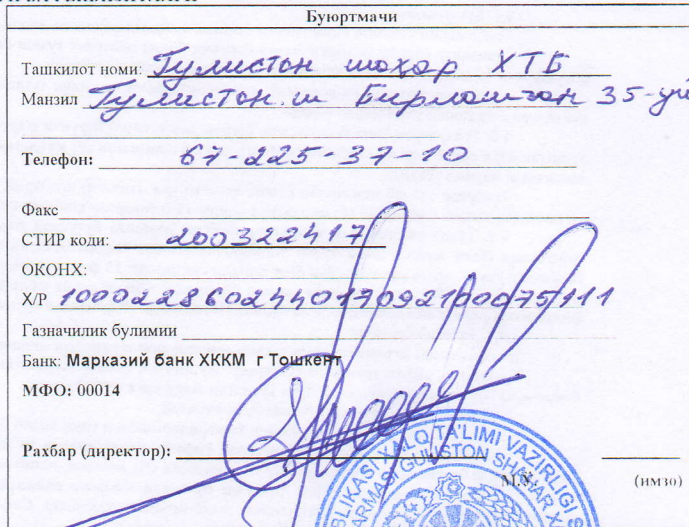 Буюртмачи
Ташкилот номи: Гулистон шаҳар ХТБ
Манзил Гулистон.ш Бирлашган 35-уй
Телефон: 67-225-37-10
Факс
СТИР коди: 200322417
ОКОНХ:
Х/Р 100022860244017092100075111
Газначилик булимии
Банк: Марказий банк ХККМ г Тошкент
МФО: 00014
Рахбар (директор):
М.У. (имзо)
BLIKASI XALQ TA'LIMI VAZIRLIGI S
ARMASI GULISTON SHAHAR XA